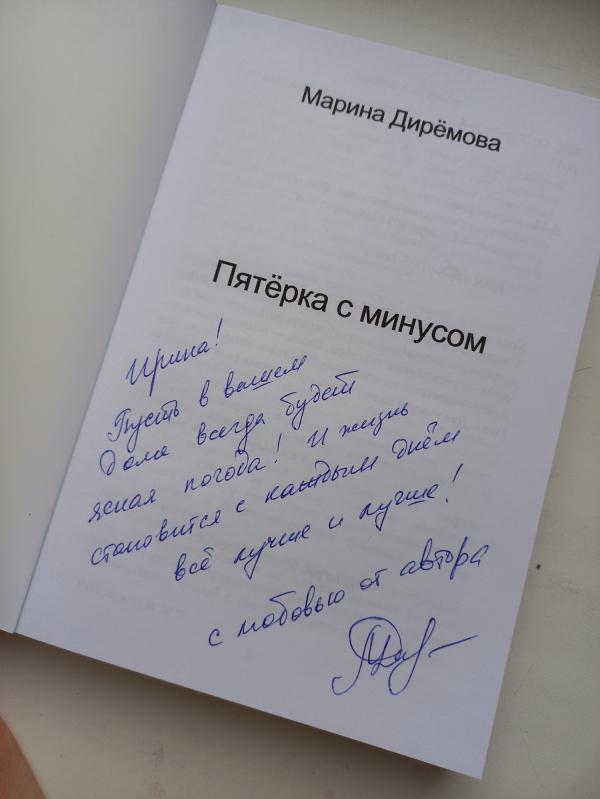 Марина Дирёмова
Пятёрка с минусом
Ирина!
Пусть в вашем
доме всегда будет
ясная погода! И жизнь
становится с каждым днём
всё лучше и лучше!
с любовью от автора